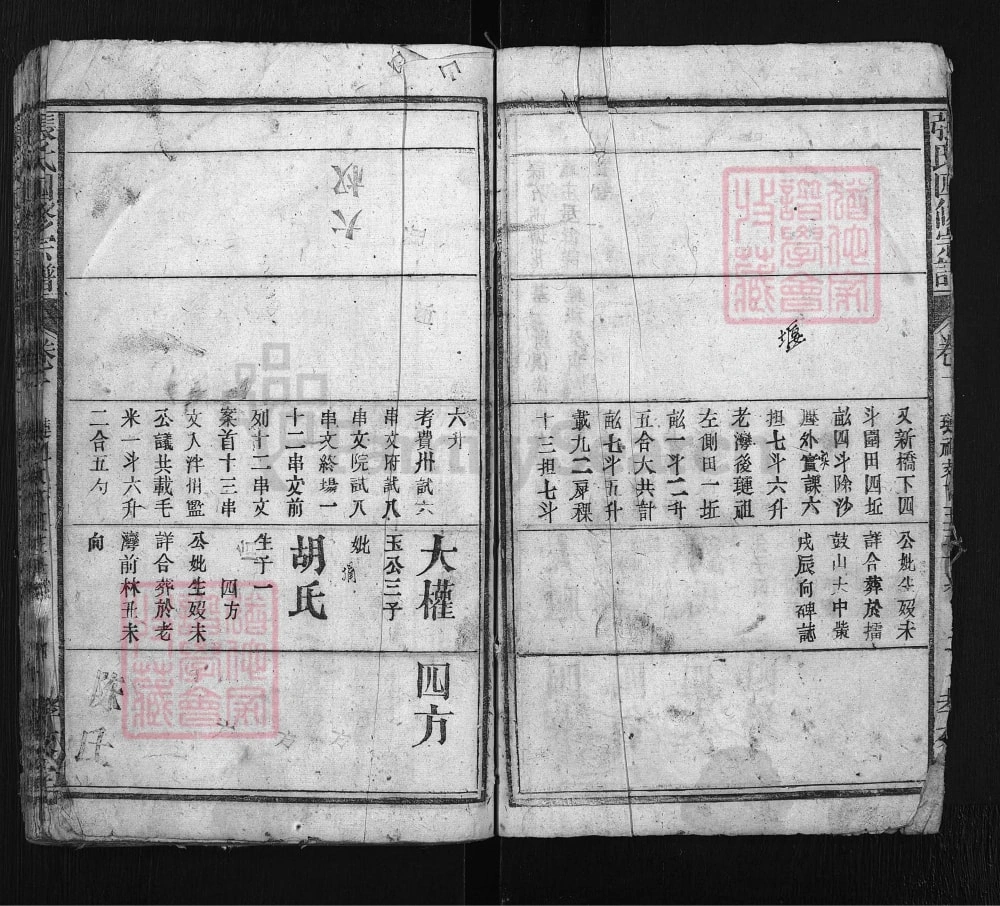 張氏四修宗譜
卷
堰
又新橋下四
斗圍田四坵
畝四斗除沙
壓外實課六
担七斗六升
老灣後璉祖
左側田一坵
畝一斗二升
五合大共計
畝七斗五升
載九二戽稞
十三担七斗
公妣生歿未
詳合葬於擂
鼓山大中嵐
戌辰向碑誌
大权
六升
考費州試六
串文府試八
串文院試八
串文終場一
十二串文前
列十二串文
案首十三串
文入泮州監
公議共載毛
米一斗六升
二合五勺
大權
玉公三子
妣
胡氏
生子一
四方
公妣生歿未
詳合葬於老
灣前林丑未
向
四方
張氏四修宗譜
卷